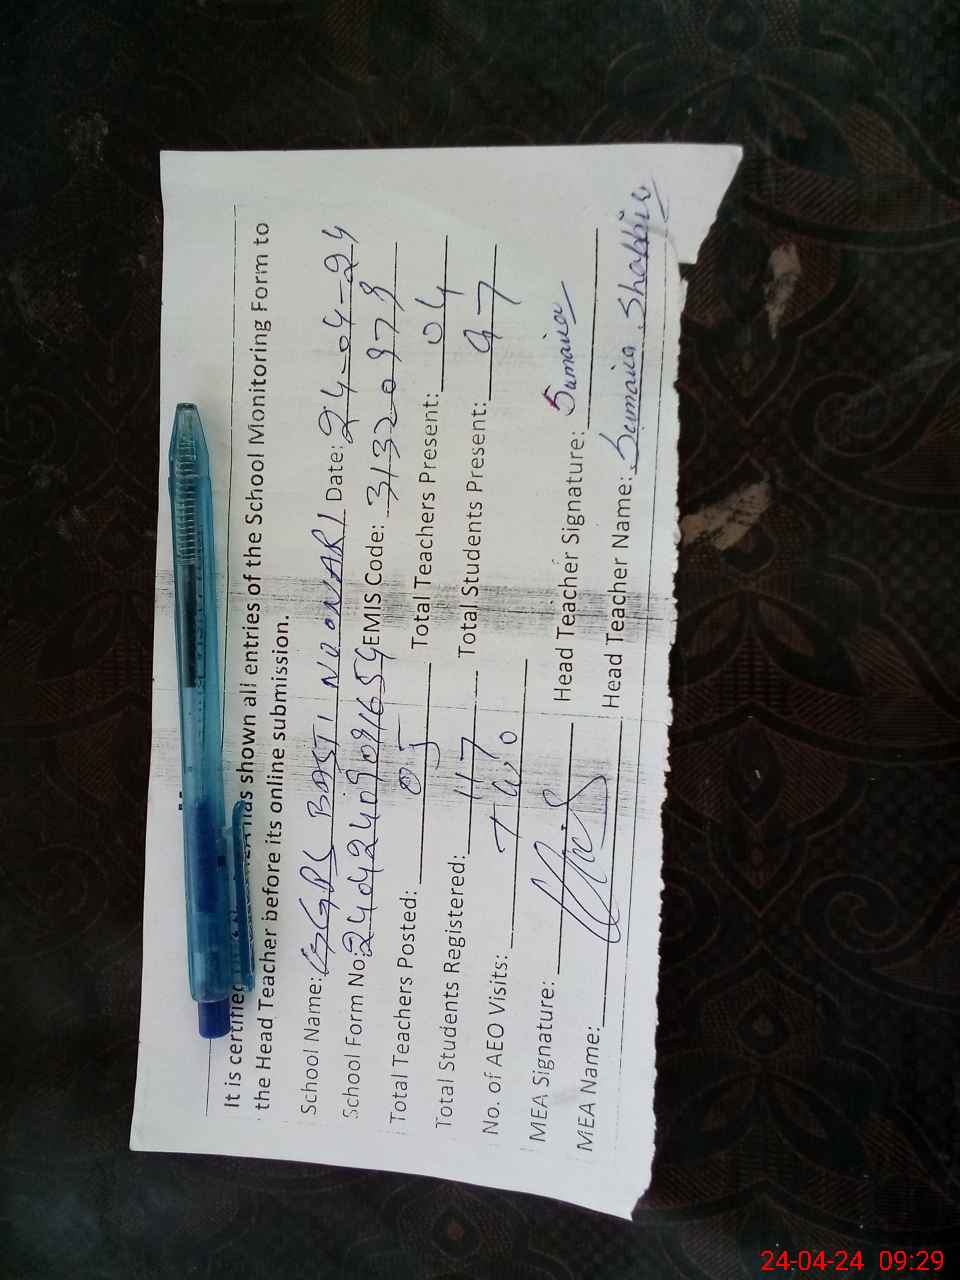 It is certified has shown all entries of the School Monitoring Form to
the Head Teacher before its online submission.
School Name: GGPS BASTI NOONARI Date: 24-04-24
School Form No: EMIS Code: 31320978
Total Teachers Posted: 05 Total Teachers Present: 04
Total Students Registered: 117 Total Students Present: 97
No. of AEO Visits: Two
MEA Signature: Head Teacher Signature: Sumaira
MEA Name: Head Teacher Name: Sumaira Shabbir
24-04-24 09:29